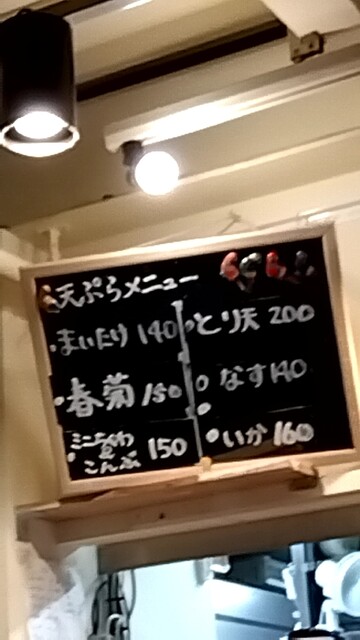 天ぷらメニュー
まいたけ 140
春菊 150
ミニちくわ
&
こんぶ 150
とり天 200
なす 140
いか 160